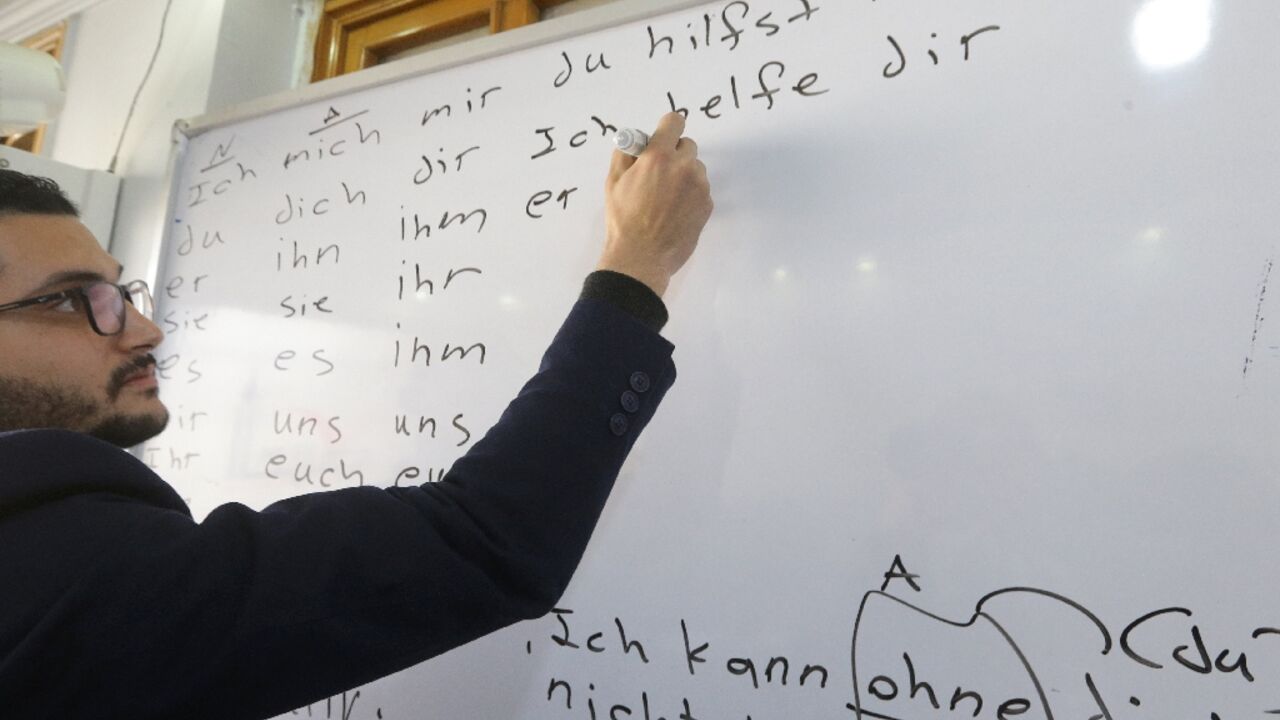 N A
Ich mich mir du hilfst
du dich dir Ich helfe dir
er ihn ihm er
sie sie ihr
es es ihm
uns uns
Ihr euch
A
Ich kann ohne (du)